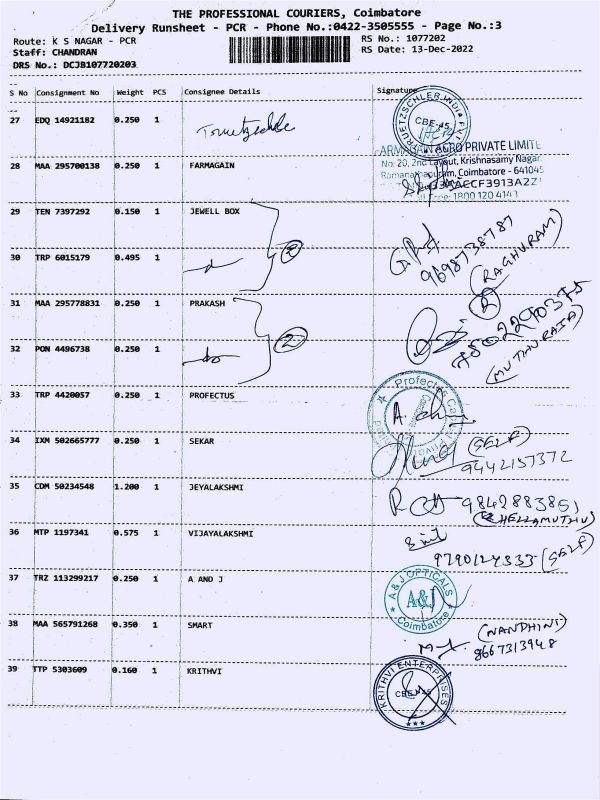 THE PROFESSIONAL COURIERS, Coimbatore
Delivery Runsheet - PCR - Phone No.:0422-3505555 - Page No.:3
Route: K S NAGAR - PCR
RS No.: 1077202
Staff: CHANDRAN
RS Date: 13-Dec-2022
DRS No.: DCJB107720203
S No Consignment No Weight PCS Consignee Details Signature
27 EDQ 14921182 0.250 1
TRUETZSCHLER INDIA PVT
CBE-45
28 MAA 295700138 0.250 1 FARMAGAIN
AGRO PRIVATE LIMITE
No: 20, 2nd Layout, Krishnasamy Nagar
Ramanathapuram, Coimbatore - 641045
1800 120 4143
29 TEN 7397292 0.150 1 JEWELL BOX
9698738787
(RAGHURAM)
30 TRP 6015179 0.495 1
2
2
31 MAA 295778831 0.250 1 PRAKASH
(MUTHURAJA)
32 PON 4496738 0.250 1
2
33 TRP 4420057 0.250 1 PROFECTUS
Profectus Capital Private
34 IXM 502665777 0.250 1 SEKAR
(SELF)
9442157372
35 CDM 50234548 1.200 1 JEYALAKSHMI
9842883851
(CHELLAMUTHU)
36 MTP 1197341 0.575 1 VIJAYALAKSHMI
9790124333 (SELF)
37 TRZ 113299217 0.250 1 A AND J
A & J OPTICALS
A&J
Coimbatore
38 MAA 565791268 0.350 1 SMART
(NANDHINI)
8667313948
39 TTP 5303609 0.160 1 KRITHVI
KRITHVI ENTERPRISES
CBE-45